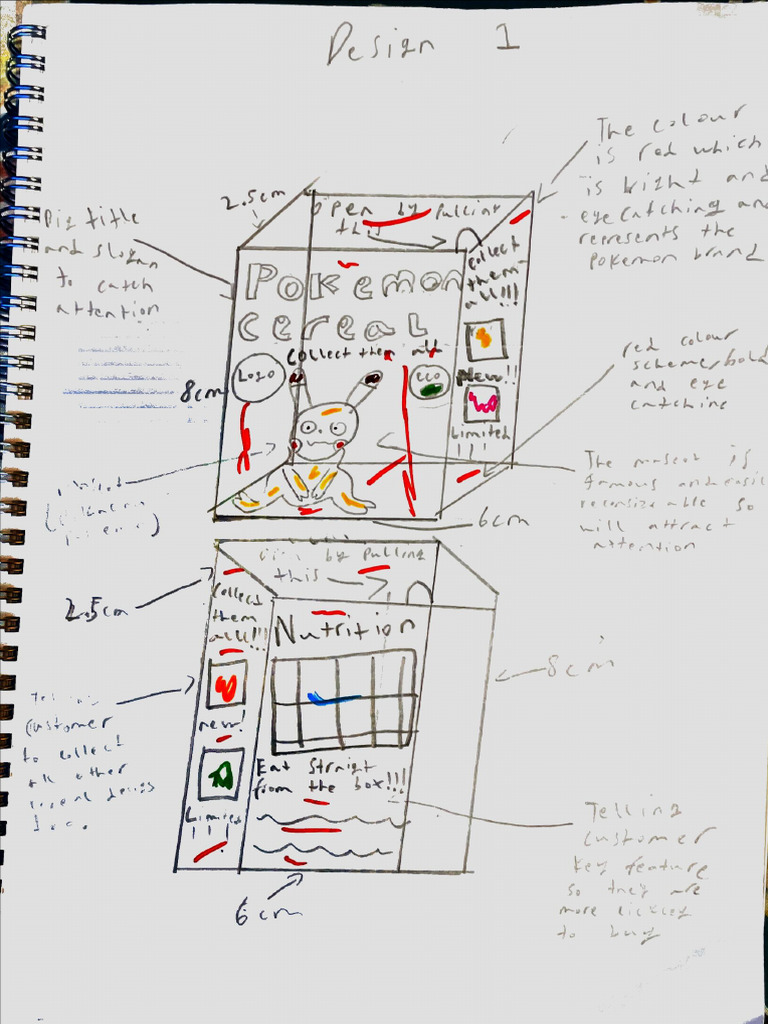 Design 1
The colour
is red which
is bright and
eye catching and
represents the
Pokemon brand
2.5cm
Open by Pulling
this
Big title
and slogan
to catch
attention
Pokemon
cereal
collect them all
collect
them
all!!!
New!!
Limited
!!!
Logo
eco
8cm
red colour
scheme bold
and eye
catching
The mascot is
famous and easily
reconizable so
will attract
attention
6cm
by Pulling
this
2.5cm
collect
them
all!!!
new!
Limited
!!!
Nutrition
Eat Straight
from the box!!!
8cm
customer
to collect
other
Telling
customer
key feature
so they are
more lickley
to buy
6cm